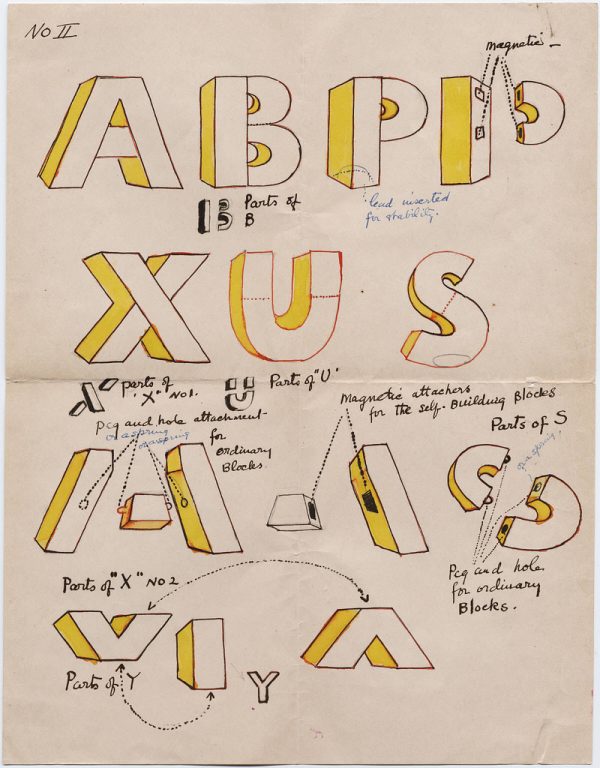 No II
magnetic —
A B P I P
Parts of
B
lead inserted
for stability.
X U S
parts of
"X" No 1.
Parts of "U"
peg and hole attachment
or a spring
or a spring
for
ordinary
Blocks.
Magnetic attachers
for the self-Building Blocks
Parts of S
or a spring
Parts of "X" NO 2
Peg and hole
for ordinary
Blocks.
Parts of Y
Y